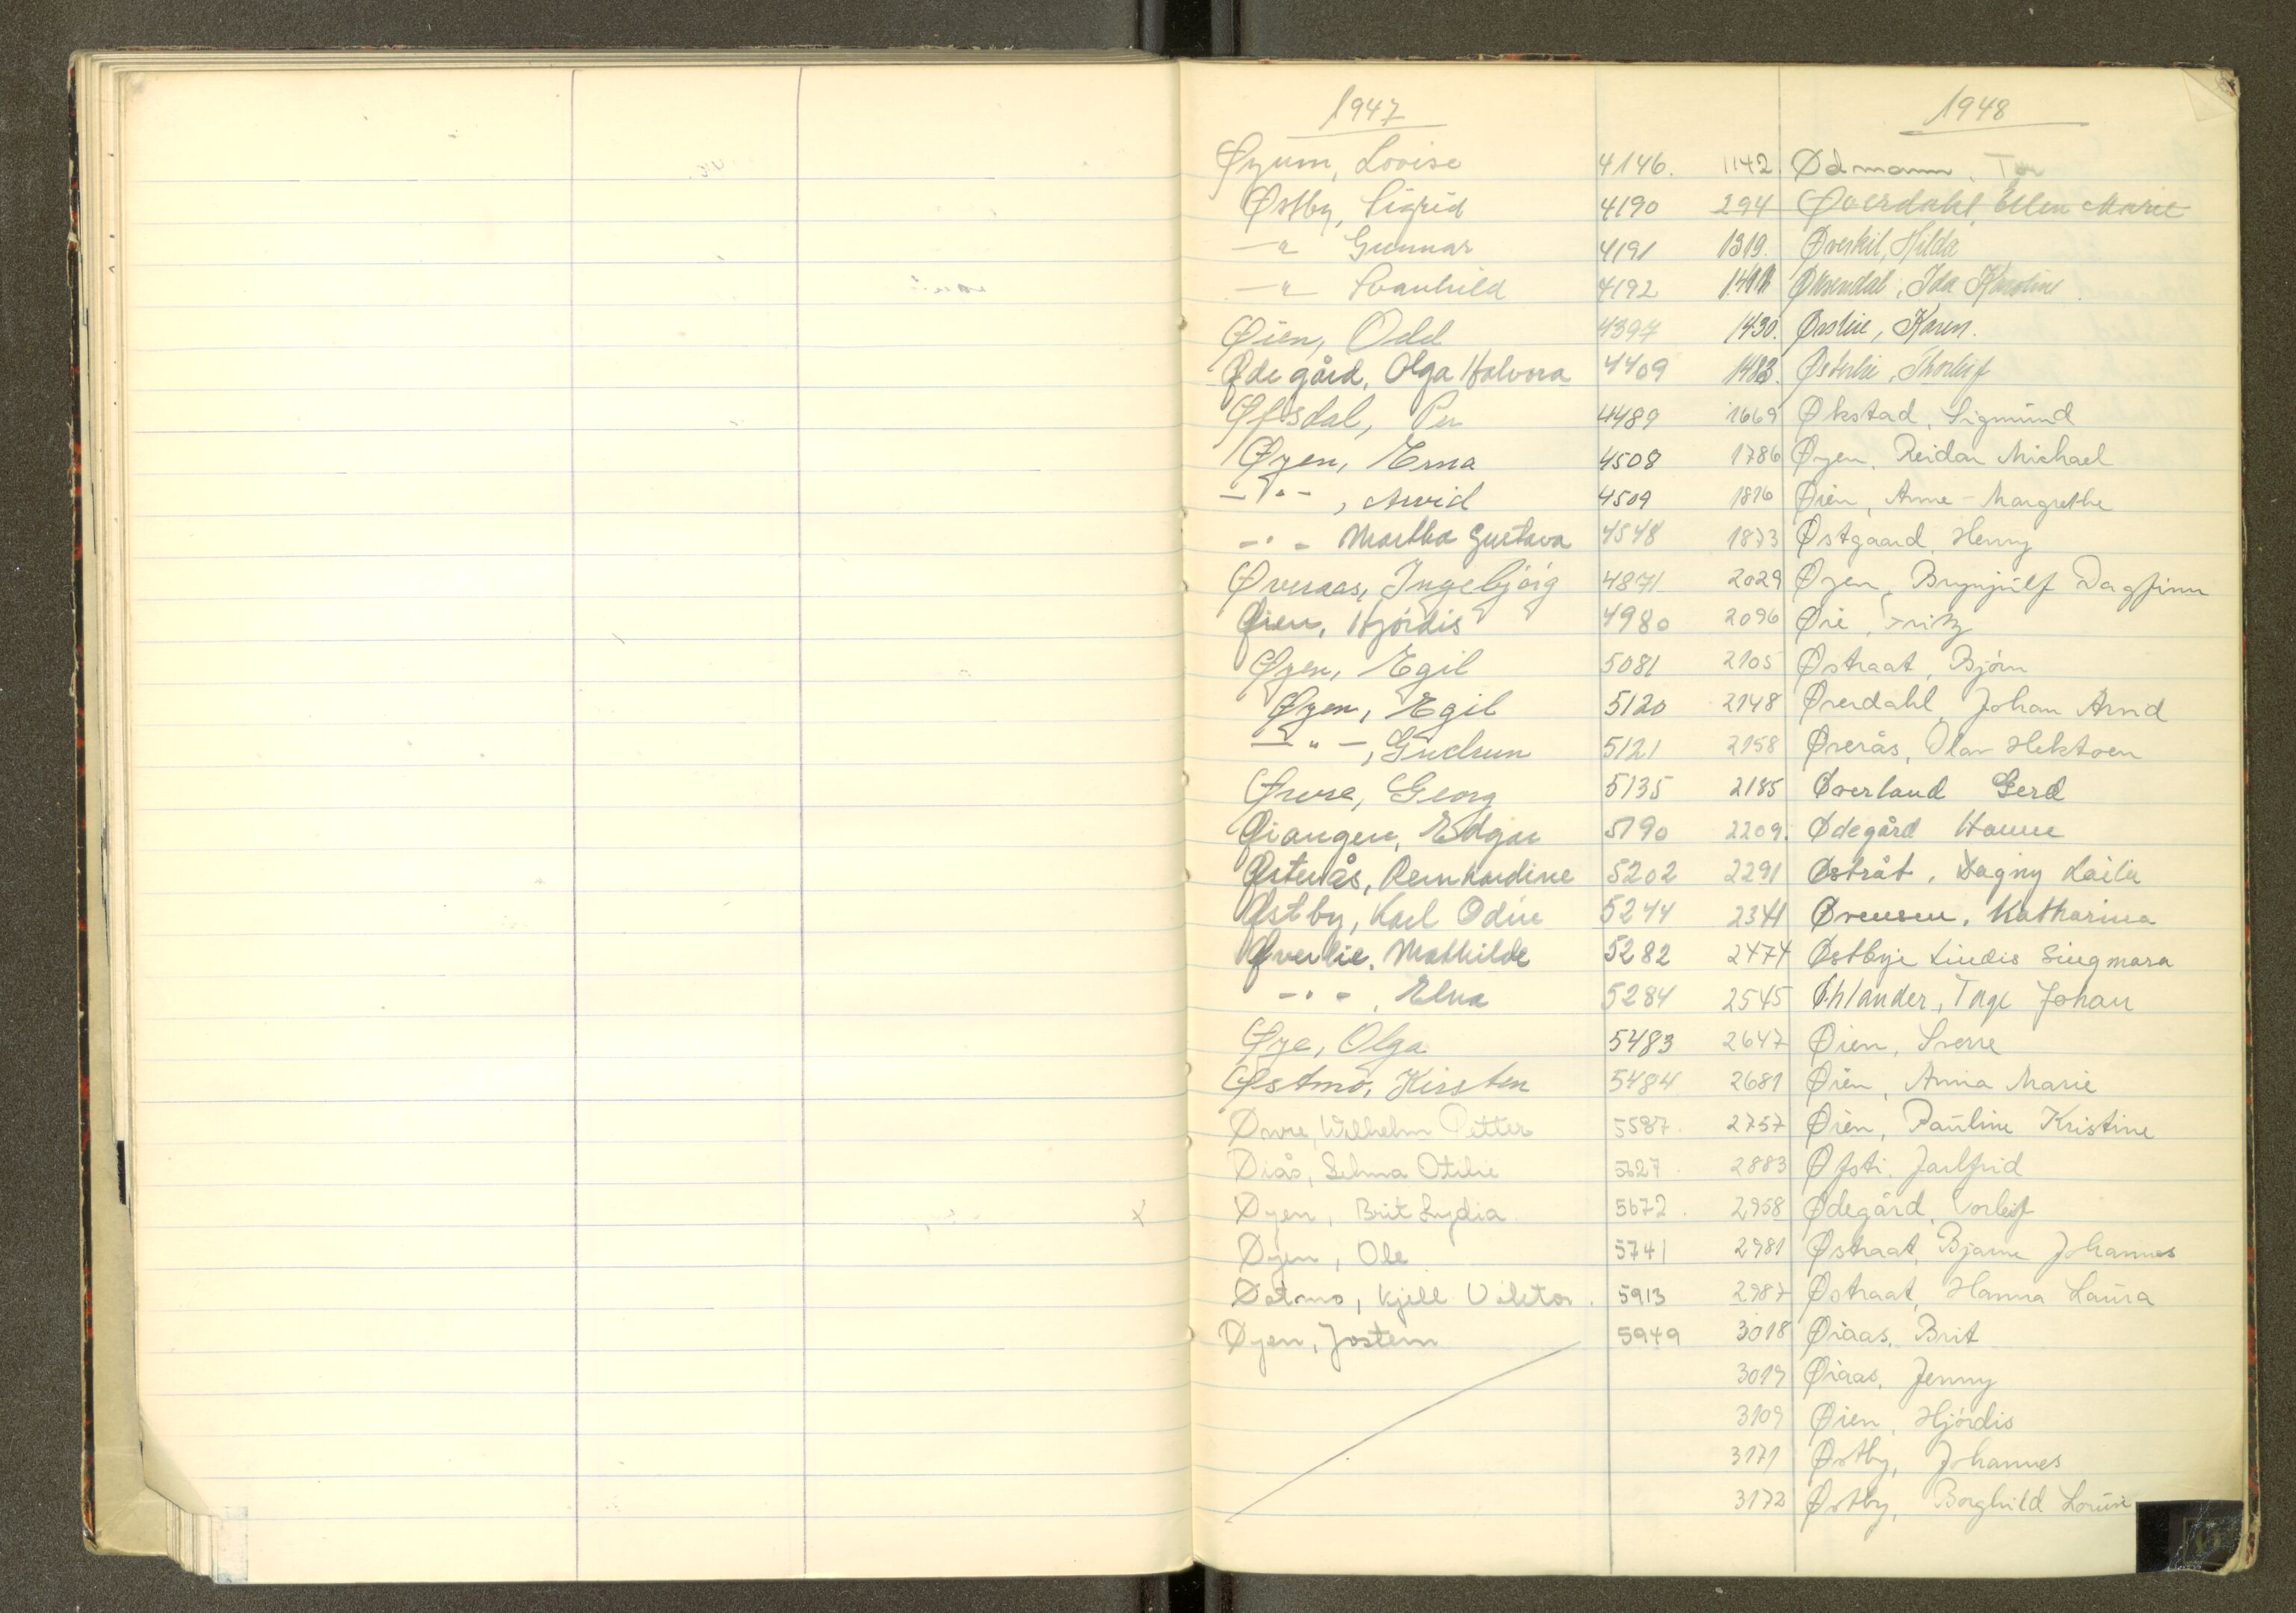 1947 1948
Øyum, Lovise 4146. 1142. Ødmann, Tor
Østby, Sigrid 4190 294 Øverdahl, Ellen Marie
—"— Gunnar 4191 1319. Øverkil, Hilda
—"— Svanhild 4192 Øksendal, Ida Karoline
Øien, Odd 4397 1430. Karen.
Ødegård, Olga Halvora 4409 1483. Østerlie, Thorleif
Øfsdal, Per 4489 1669 Økstad, Sigmund
Øyen, Erna 4508 1786 Øyen, Reidar Michael
—"—, Arvid 4509 1816 Øien, Anne-Margrethe
—"— Martha Gustava 4548 1873 Østgaard, Henny
Øveraas, Ingebjørg 4871 2029 Øyen, Brynjulf Dagfinn
Øien, Hjördis 4980 2096 Øie, Fritz
Øyen, Egil 5081 2105 Østraat, Bjørn
Øyen, Egil 5120 2148 Øverdahl, Johan Arnd
—"—, Gudrun 5121 2158 Øverås, Olav Hektoen
Øwre, Georg 5135 2185 Øverland Gerd
Øiangen, Edgar 5190 2209. Ødegård Hanne
Østerås, Reinhardine 5202 2291 Østråt, Dagny Laila
Østby, Karl Odin 5244 2341 Øvensen, Katharina
Øverlie, Mathilde 5282 2474 Østbye Lindis Singmara
—"—, Elna 5284 2545 Øhlander, Tage Johan
Øye, Olga 5483 2647 Øien, Sverre
Østmo, Kirsten 5484 2681 Øien, Anna Marie
Øwre, Wilhelm Petter 5587. 2757 Øien, Pauline Kristine
Øiås, Selma Otilie 5627. 2883 Øfsti, Jarlfrid
Øyen, Brit Lydia. 5672. 2958 Ødegård, Torleif
Øyen, Ole 5741 2981 Østraat, Bjarne Johannes
Østmo, Kjell Viktor. 5913 2987 Østraat, Hanna Laura
Øyen, Jostein 5949 3018 Øiaas, Brit
3019 Øiaas, Jenny
3109 Øien, Hjördis
3171 Østby, Johannes
3172 Østby, Borghild Louise